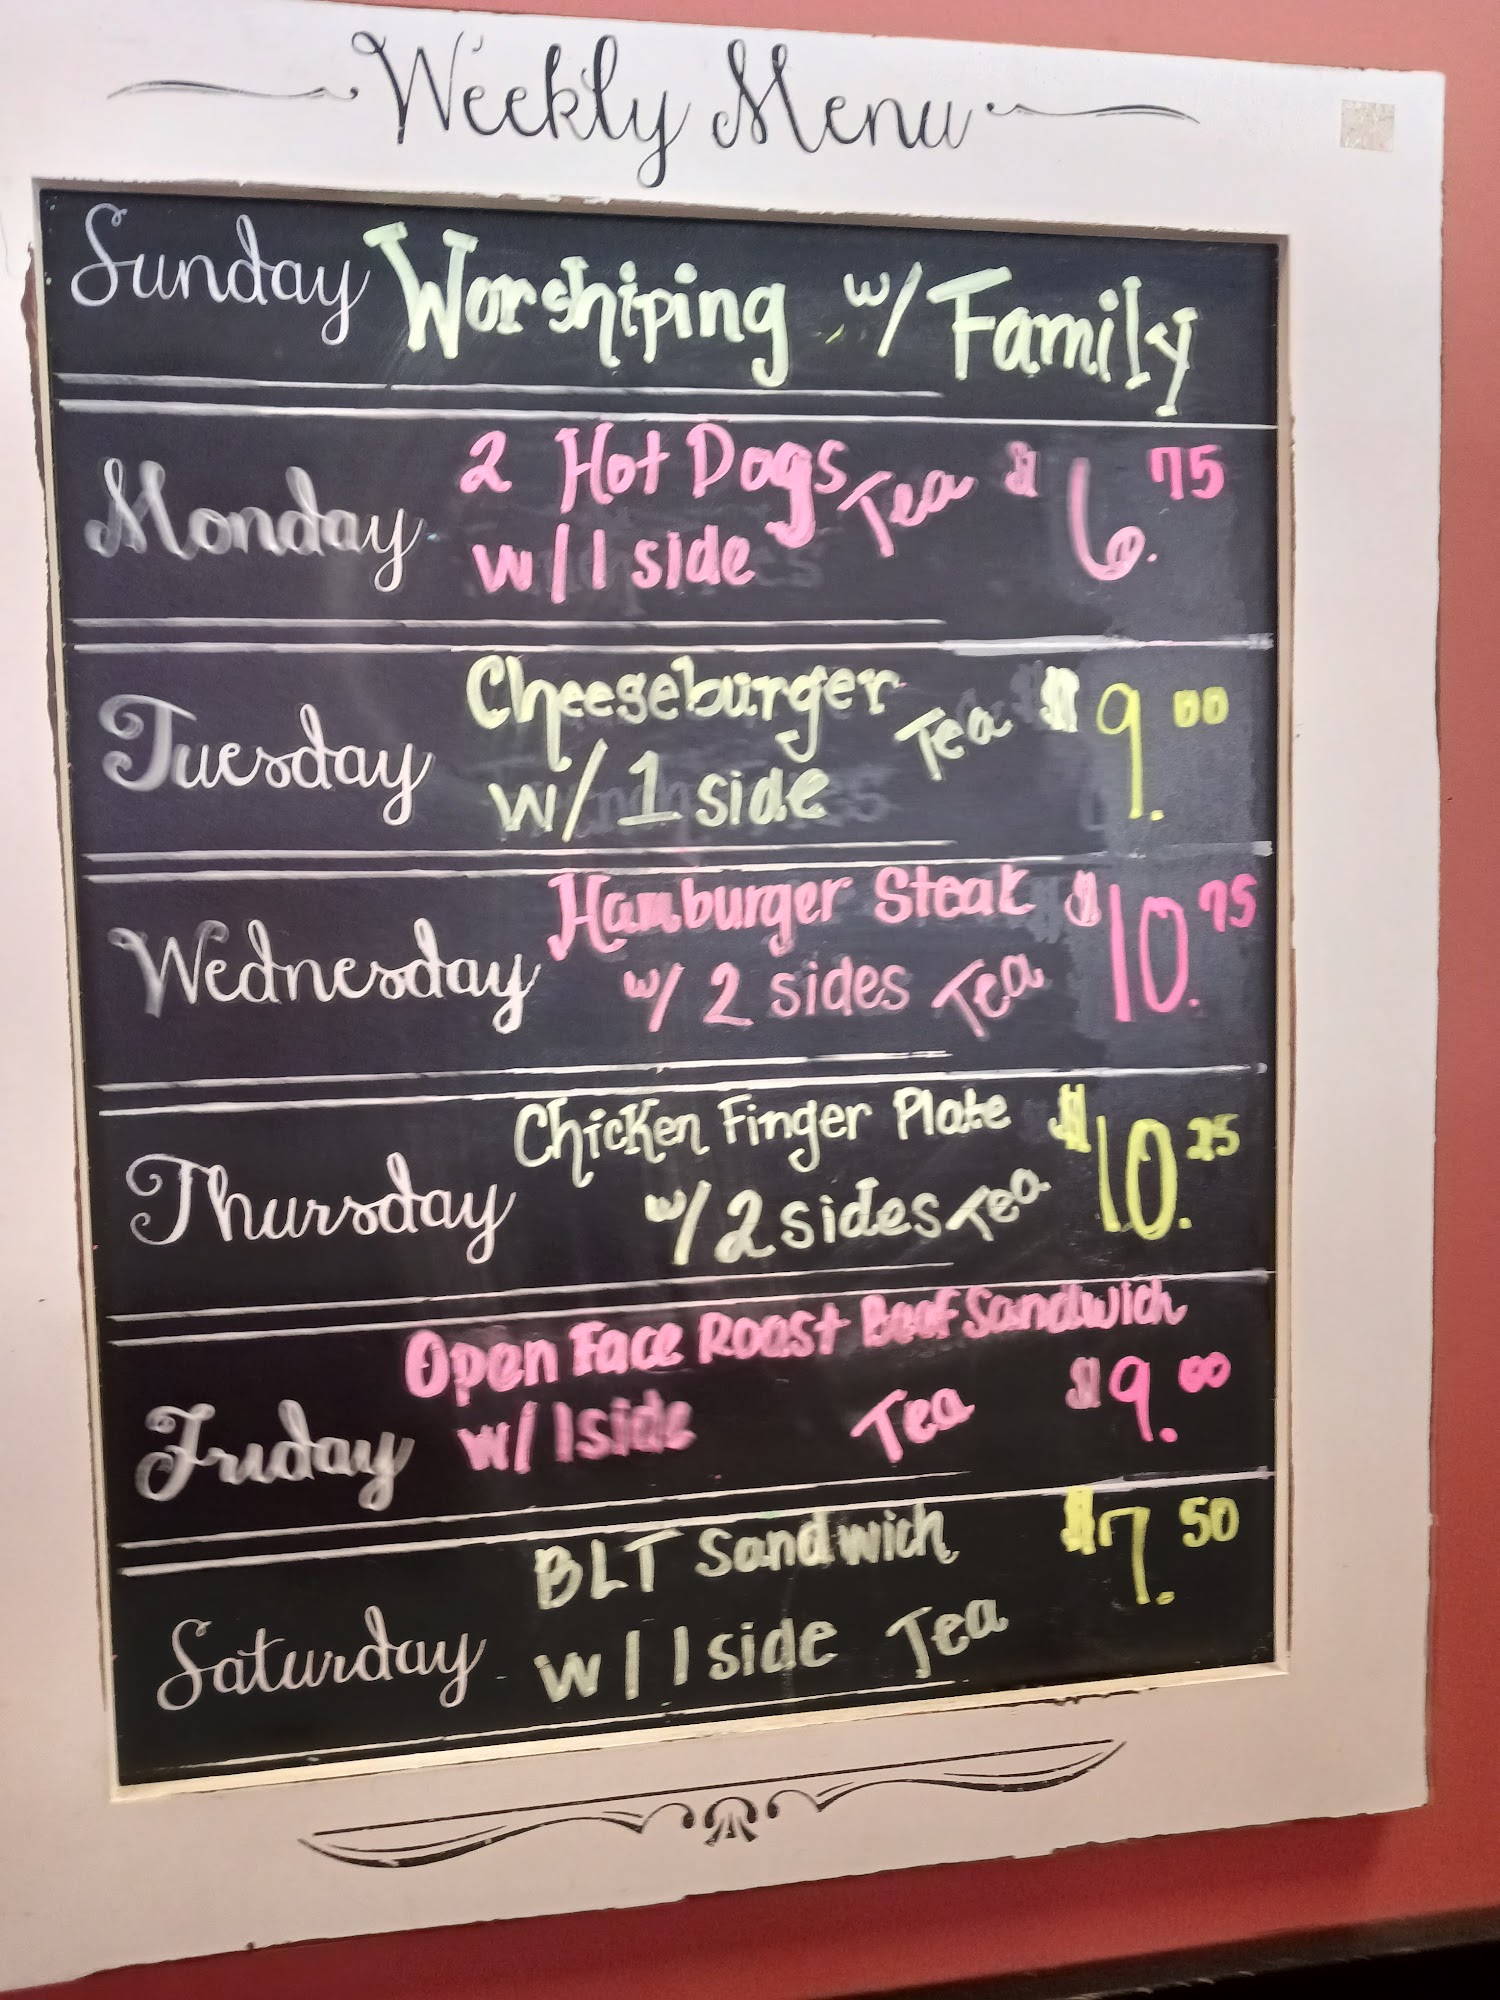 Weekly Menu
Sunday Worshiping w/ Family
Monday 2 Hot Dogs Tea $6.75
w/ 1 side
Tuesday Cheeseburger Tea $9.00
w/ 1 side
Wednesday Hamburger Steak $10.75
w/ 2 sides Tea
Thursday Chicken Finger Plate $10.25
w/ 2 sides Tea
Open Face Roast Beef Sandwich
Friday w/ 1 side Tea $9.00
BLT Sandwich $7.50
Saturday w/ 1 side Tea